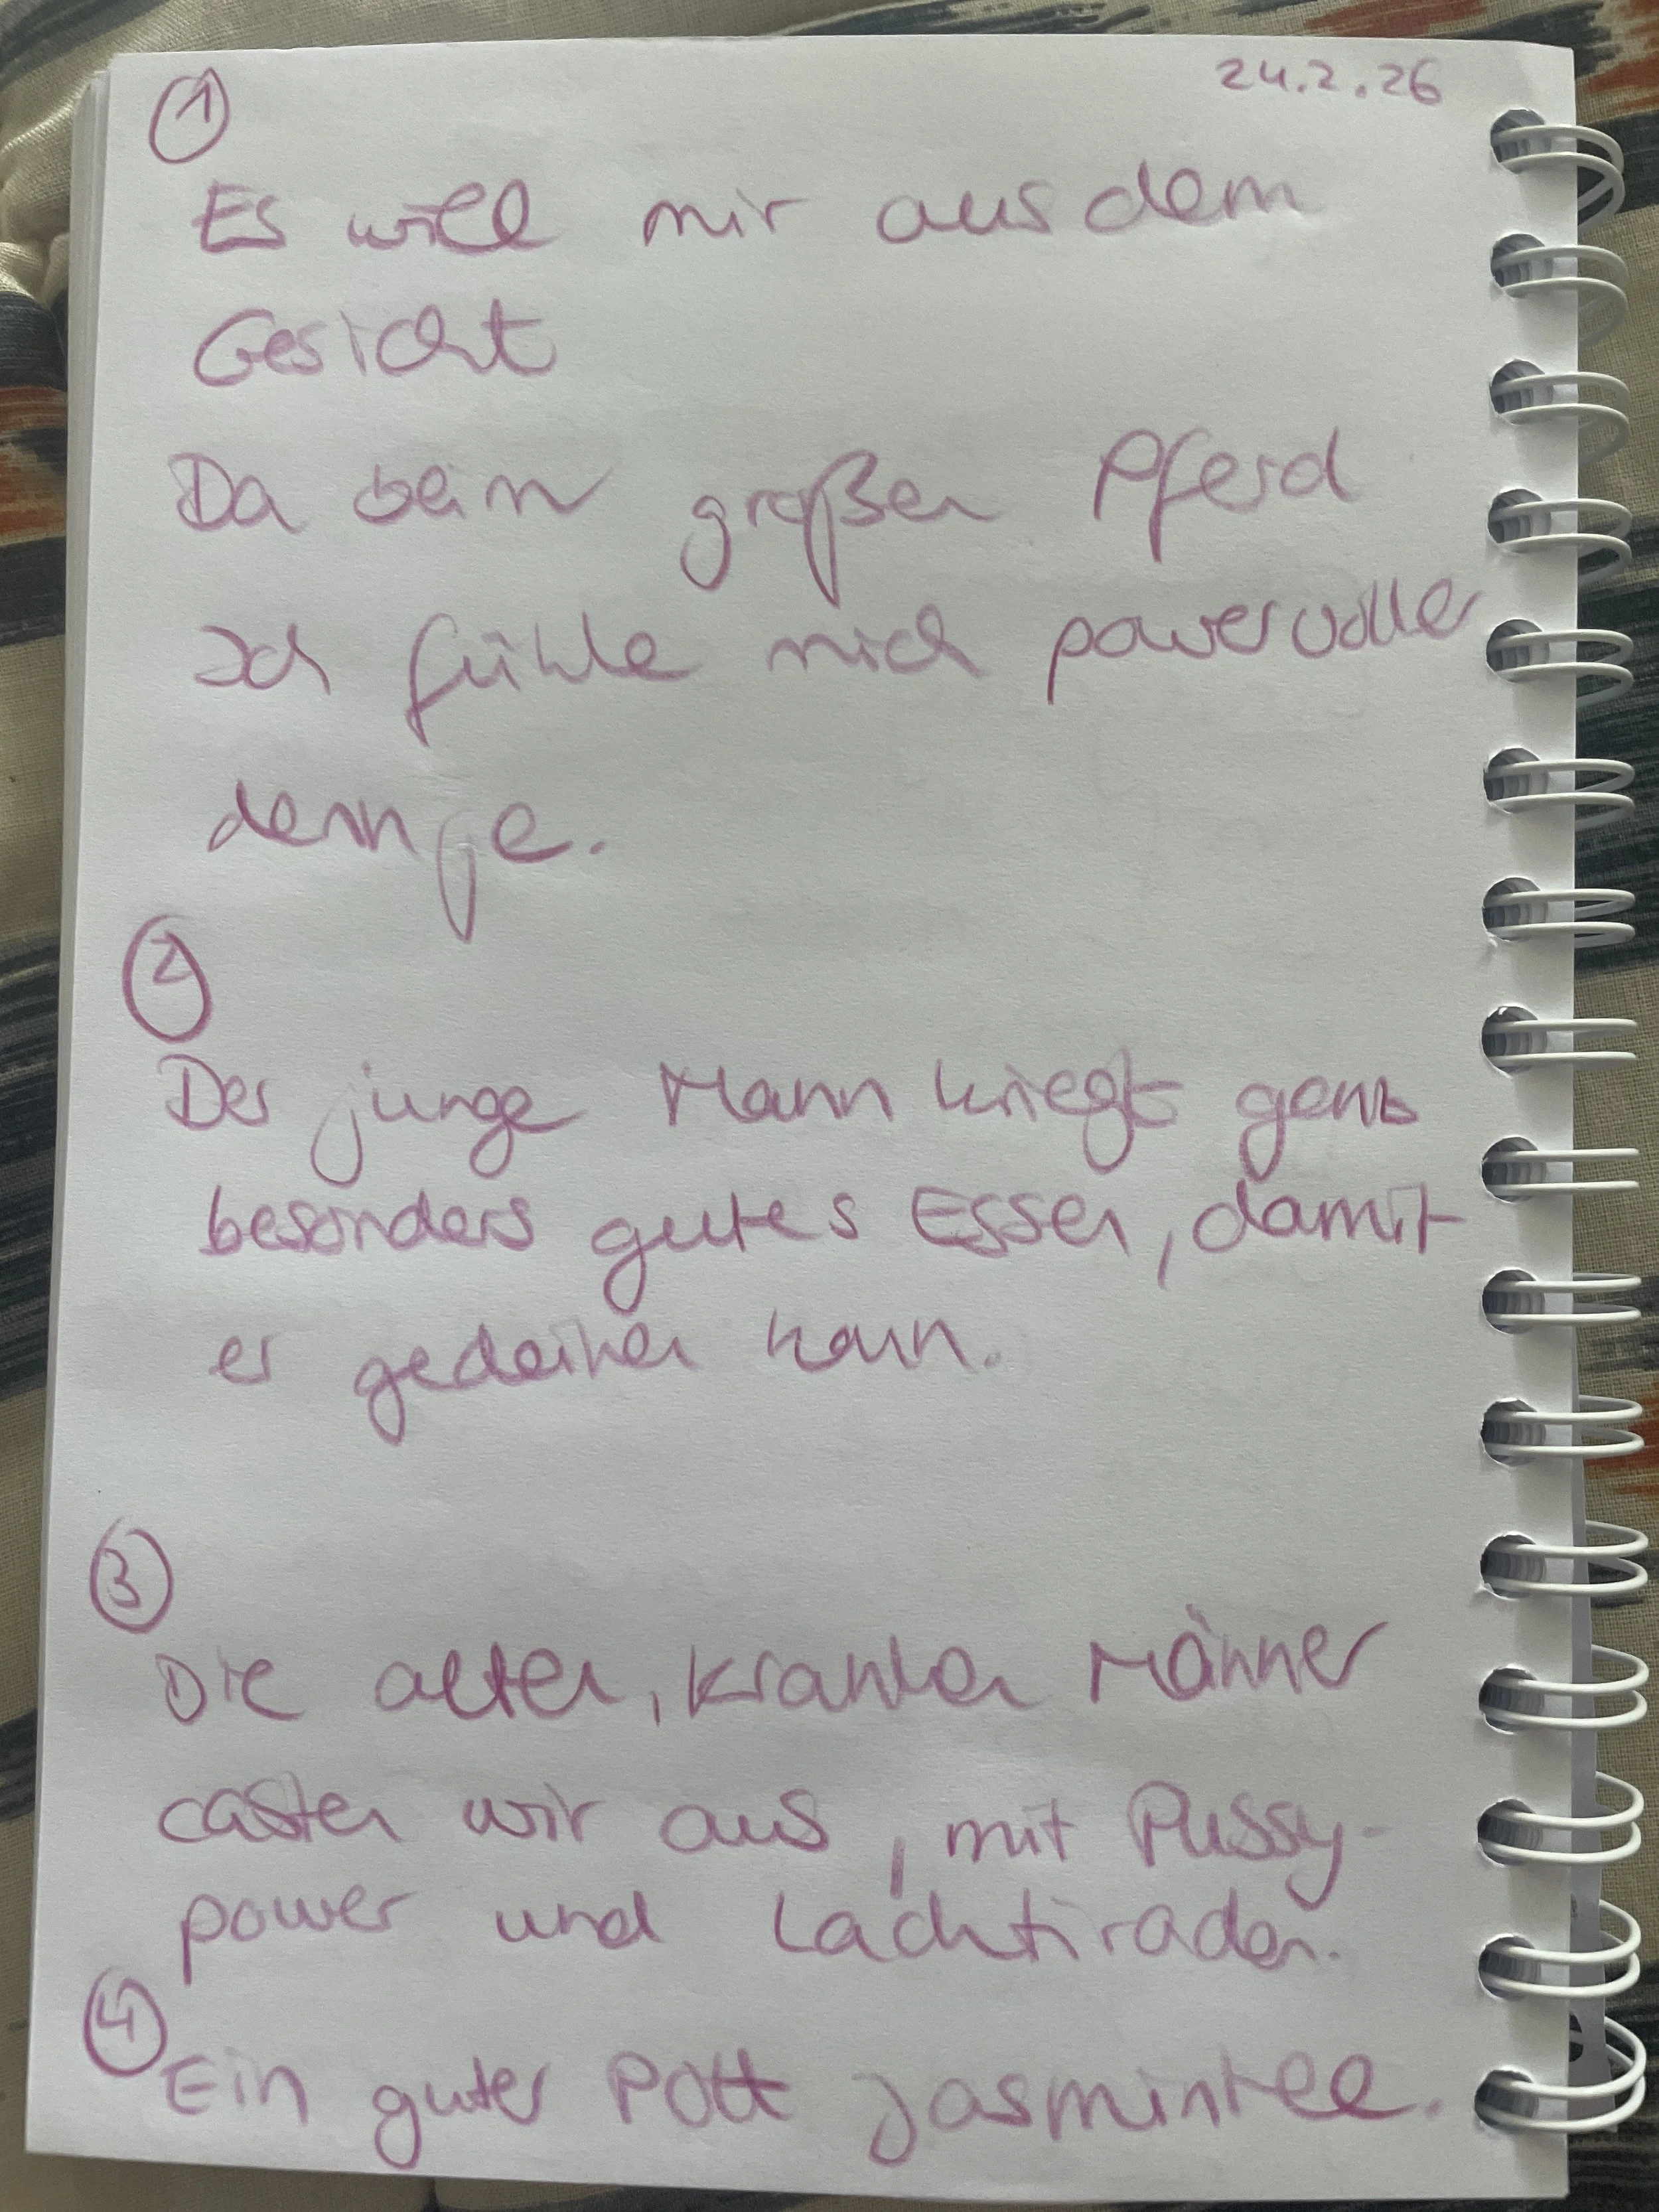 24.2.26
①
Es will mir aus dem
Gesicht
Da beim großen Pferd
Ich fühle mich powervoller
denn je.
②
Der junge Mann kriegt ganz
besonders gutes Essen, damit
er gedeihen kann.
③
Die alten, kranken Männer
casten wir aus, mit Pussy-
power und Lachtiraden.
④
Ein guter Pott Jasmintee.